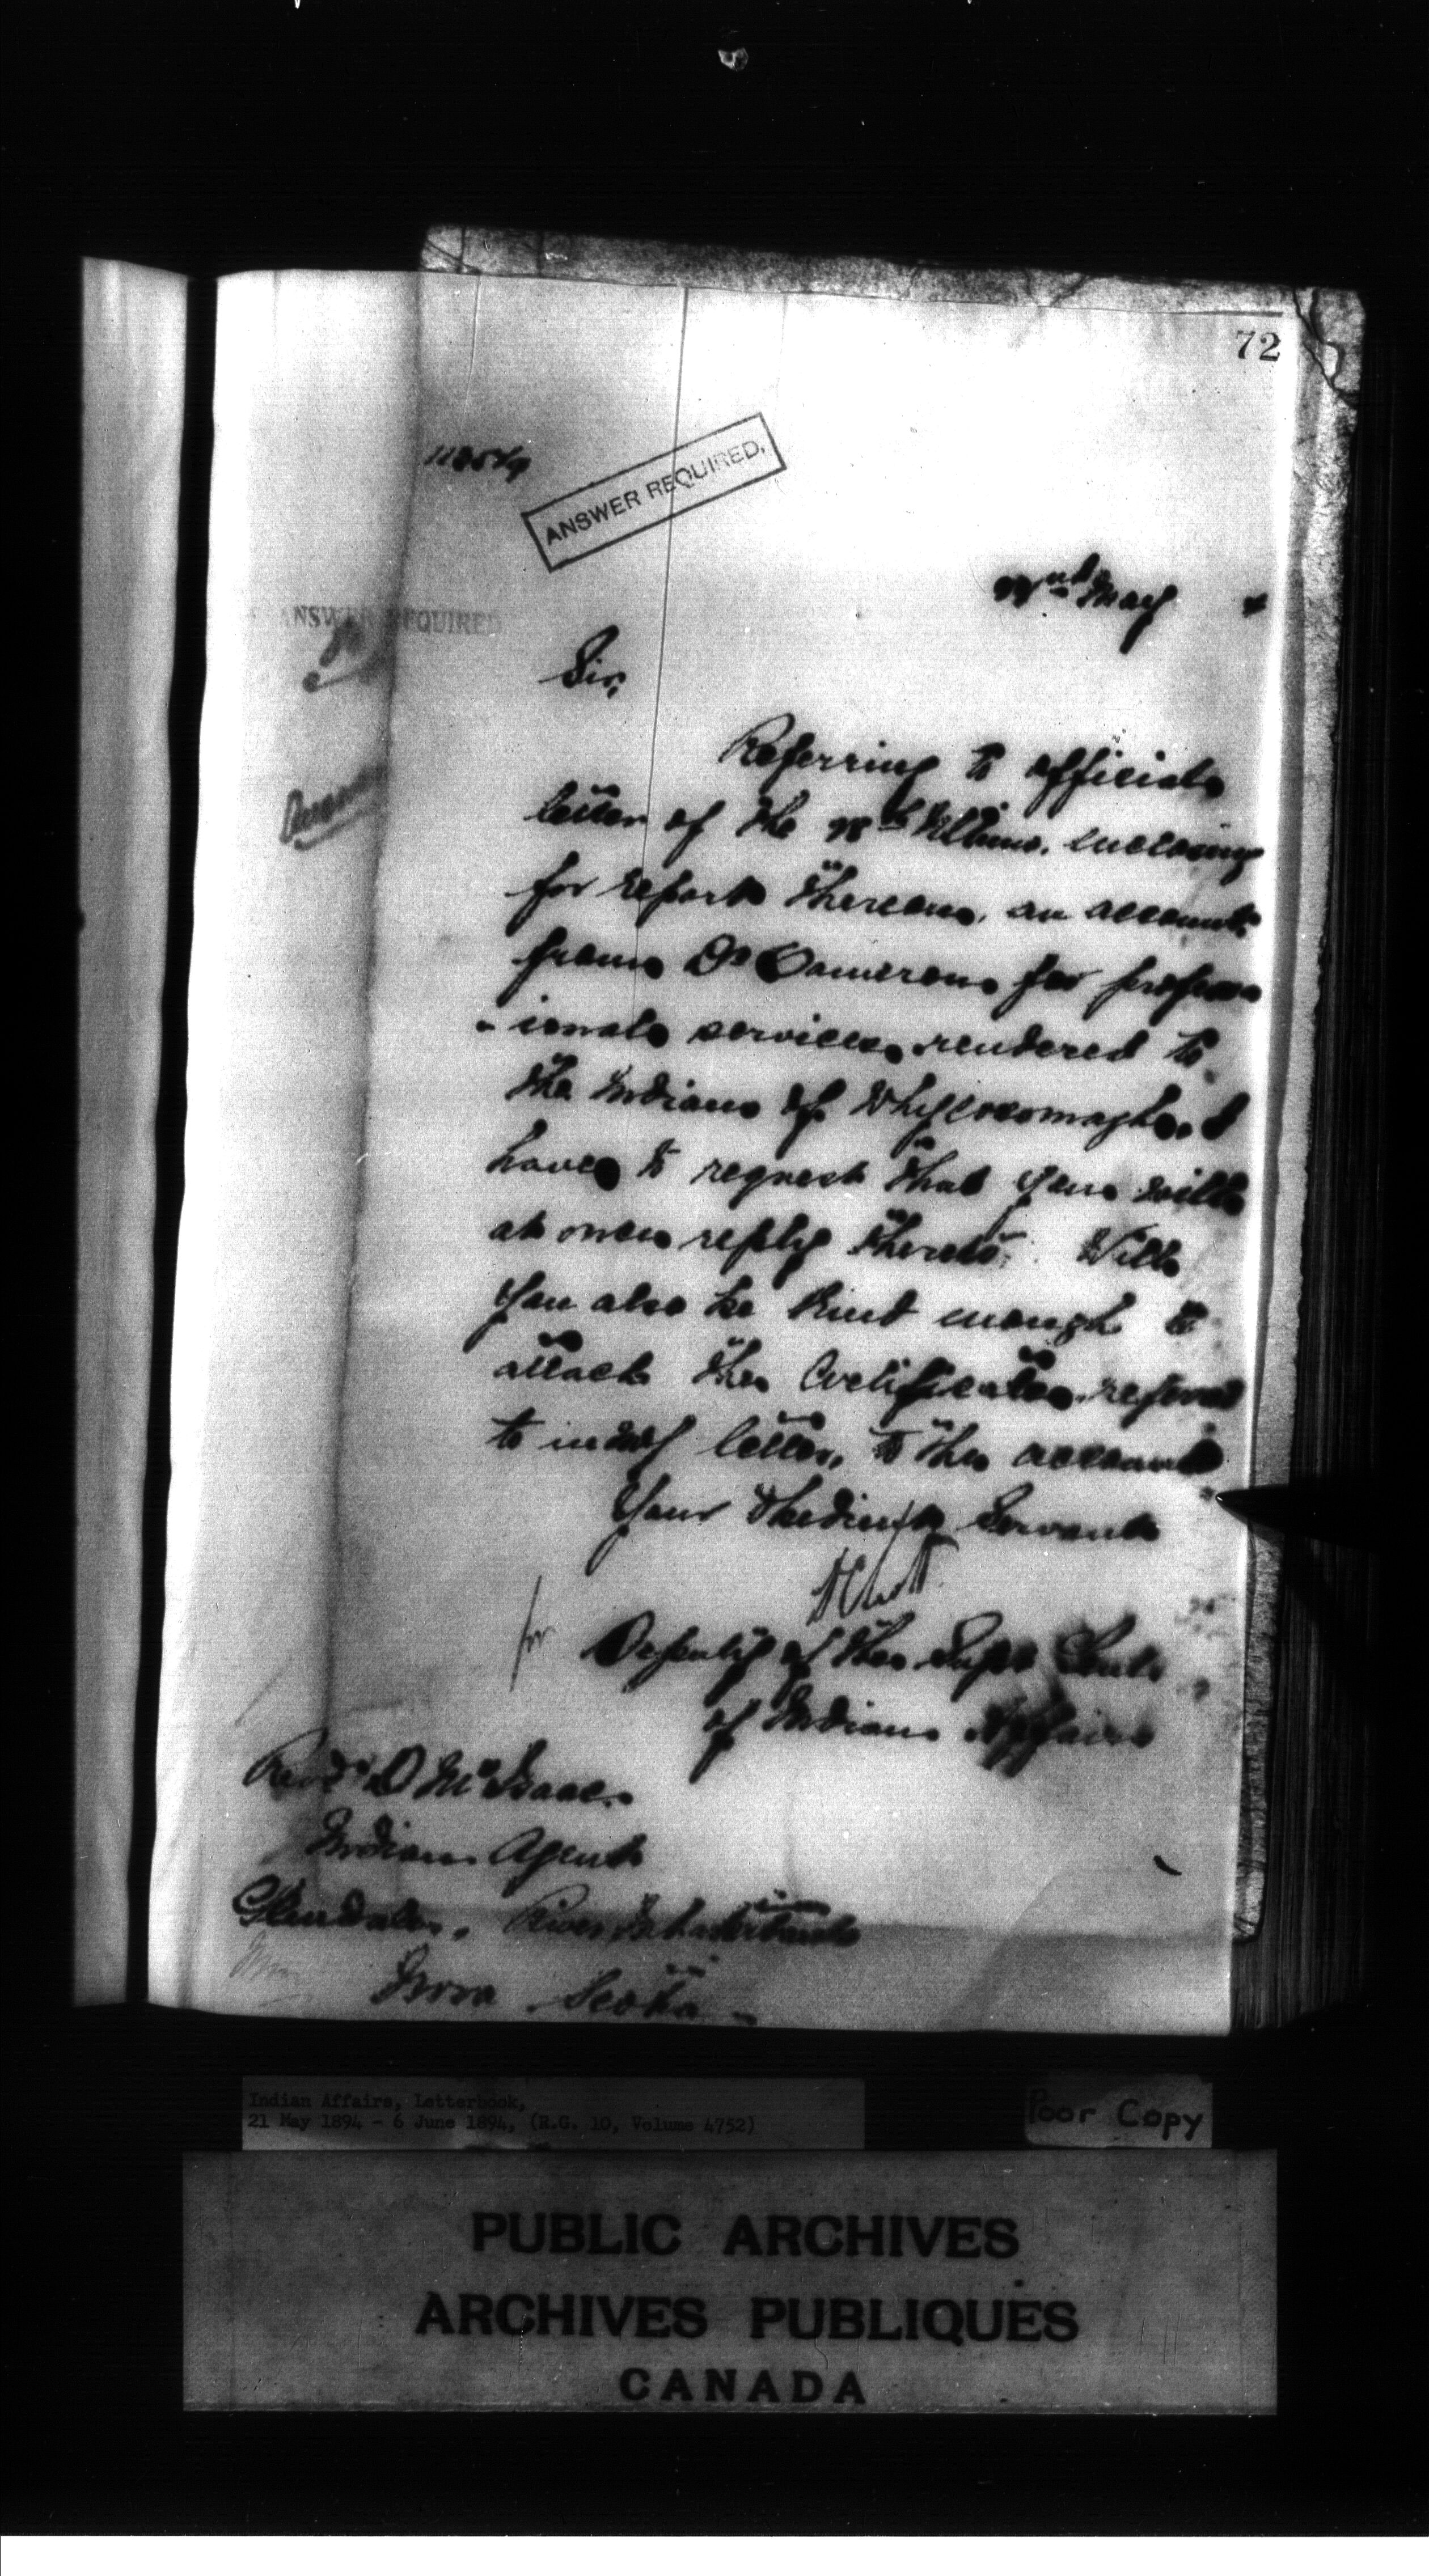 72
ANSWER REQUIRED.
22nd May 4
ANSWER REQUIRED
Sir,
Referring to official
letter of the Ultimo, enclosing
for report thereon, an account
from Dr Cameron for profess
-ional services rendered to
the Indians of Whycocomagh, I
have to request that you will
at once reply thereto. Will
you also be kind enough to
attach the Certificate referred
to in letter, to the account
Your Obedient Servant
for Deputy of the Supt Genl
of Indian Affairs
Revd D McIsaac
Indian Agent
Glendale, River Inhabitants
Nova Scotia
Indian Affairs, Letterbook,
21 May 1894 - 6 June 1894, (R.G. 10, Volume 4752)
Poor Copy
PUBLIC ARCHIVES
ARCHIVES PUBLIQUES
CANADA